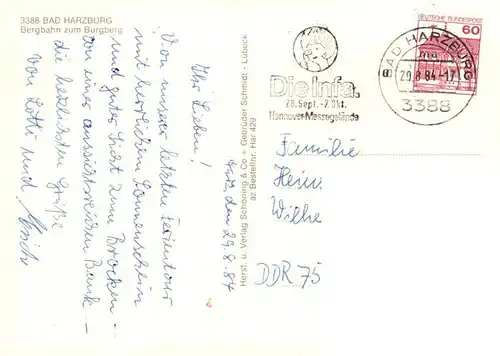 3388 BAD HARZBURG
Bergbahn zum Burgberg
Harz, den 29.8.84
Ihr Lieben!
Von unserer letzten Ferientour
mit herrlichem Sonnenschein
und guter Sicht zum Brocken -
von einer aussichtsreichen Bank -
die herzlichsten Grüße
von Lotti und
Herst. u. Verlag Schöning & Co + Gebrüder Schmidt - Lübeck
az Bestellnr. Har 429
Die Infa.
28. Sept. - 7. Okt.
Hannover-Messegelände
BAD HARZBURG
29.8.84-17
3388
DEUTSCHE BUNDESPOST
60
Familie
Hein
Wilke
DDR 75